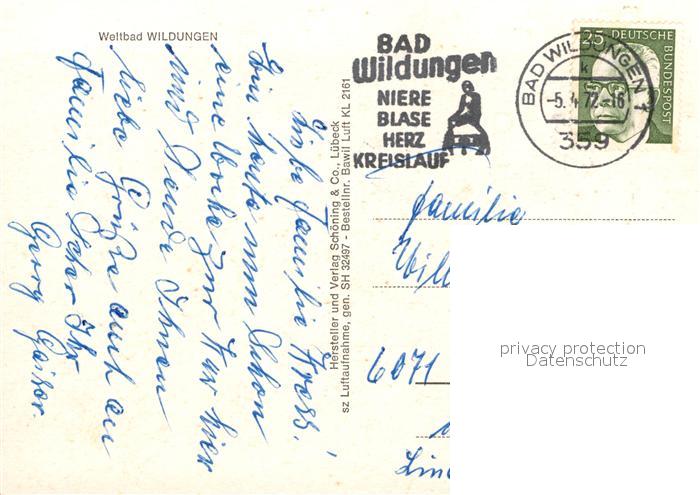 Weltbad WILDUNGEN
Liebe Familie Kress!
Bin heute nun schon
eine Woche zur Kur hier
und sende Ihnen
liebe Grüße auch an
Familie Ihr
Georg
Hersteller und Verlag Schöning & Co., Lübeck
sz Luftaufnahme, gen. SH 32497 - Bestellnr. Bawil Luft KL 2161
BAD
Wildungen
NIERE
BLASE
HERZ
KREISLAUF
BAD WILDUNGEN 1
k
-5. 4. 72.-16
359
25 DEUTSCHE
BUNDESPOST
Familie
Will
6071
Lin
privacy protection
Datenschutz